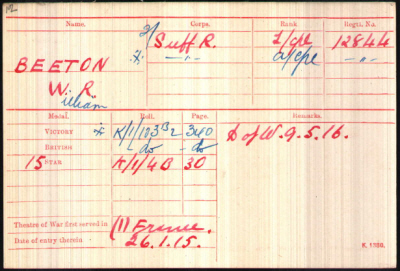 Name. Corps. Rank Regtl. No.
2/ Suff R. L/cpl 12844
BEETON * —〃— A/cpl —〃—
W. R.
illiam
Medal. Roll. Page. Remarks.
VICTORY * K/1/103 B2 3240 D of W. 9.5.16.
BRITISH do do
15 STAR K/1/4B 30
Theatre of War first served in (1) France.
Date of entry therein 26.1.15.
K. 1380.